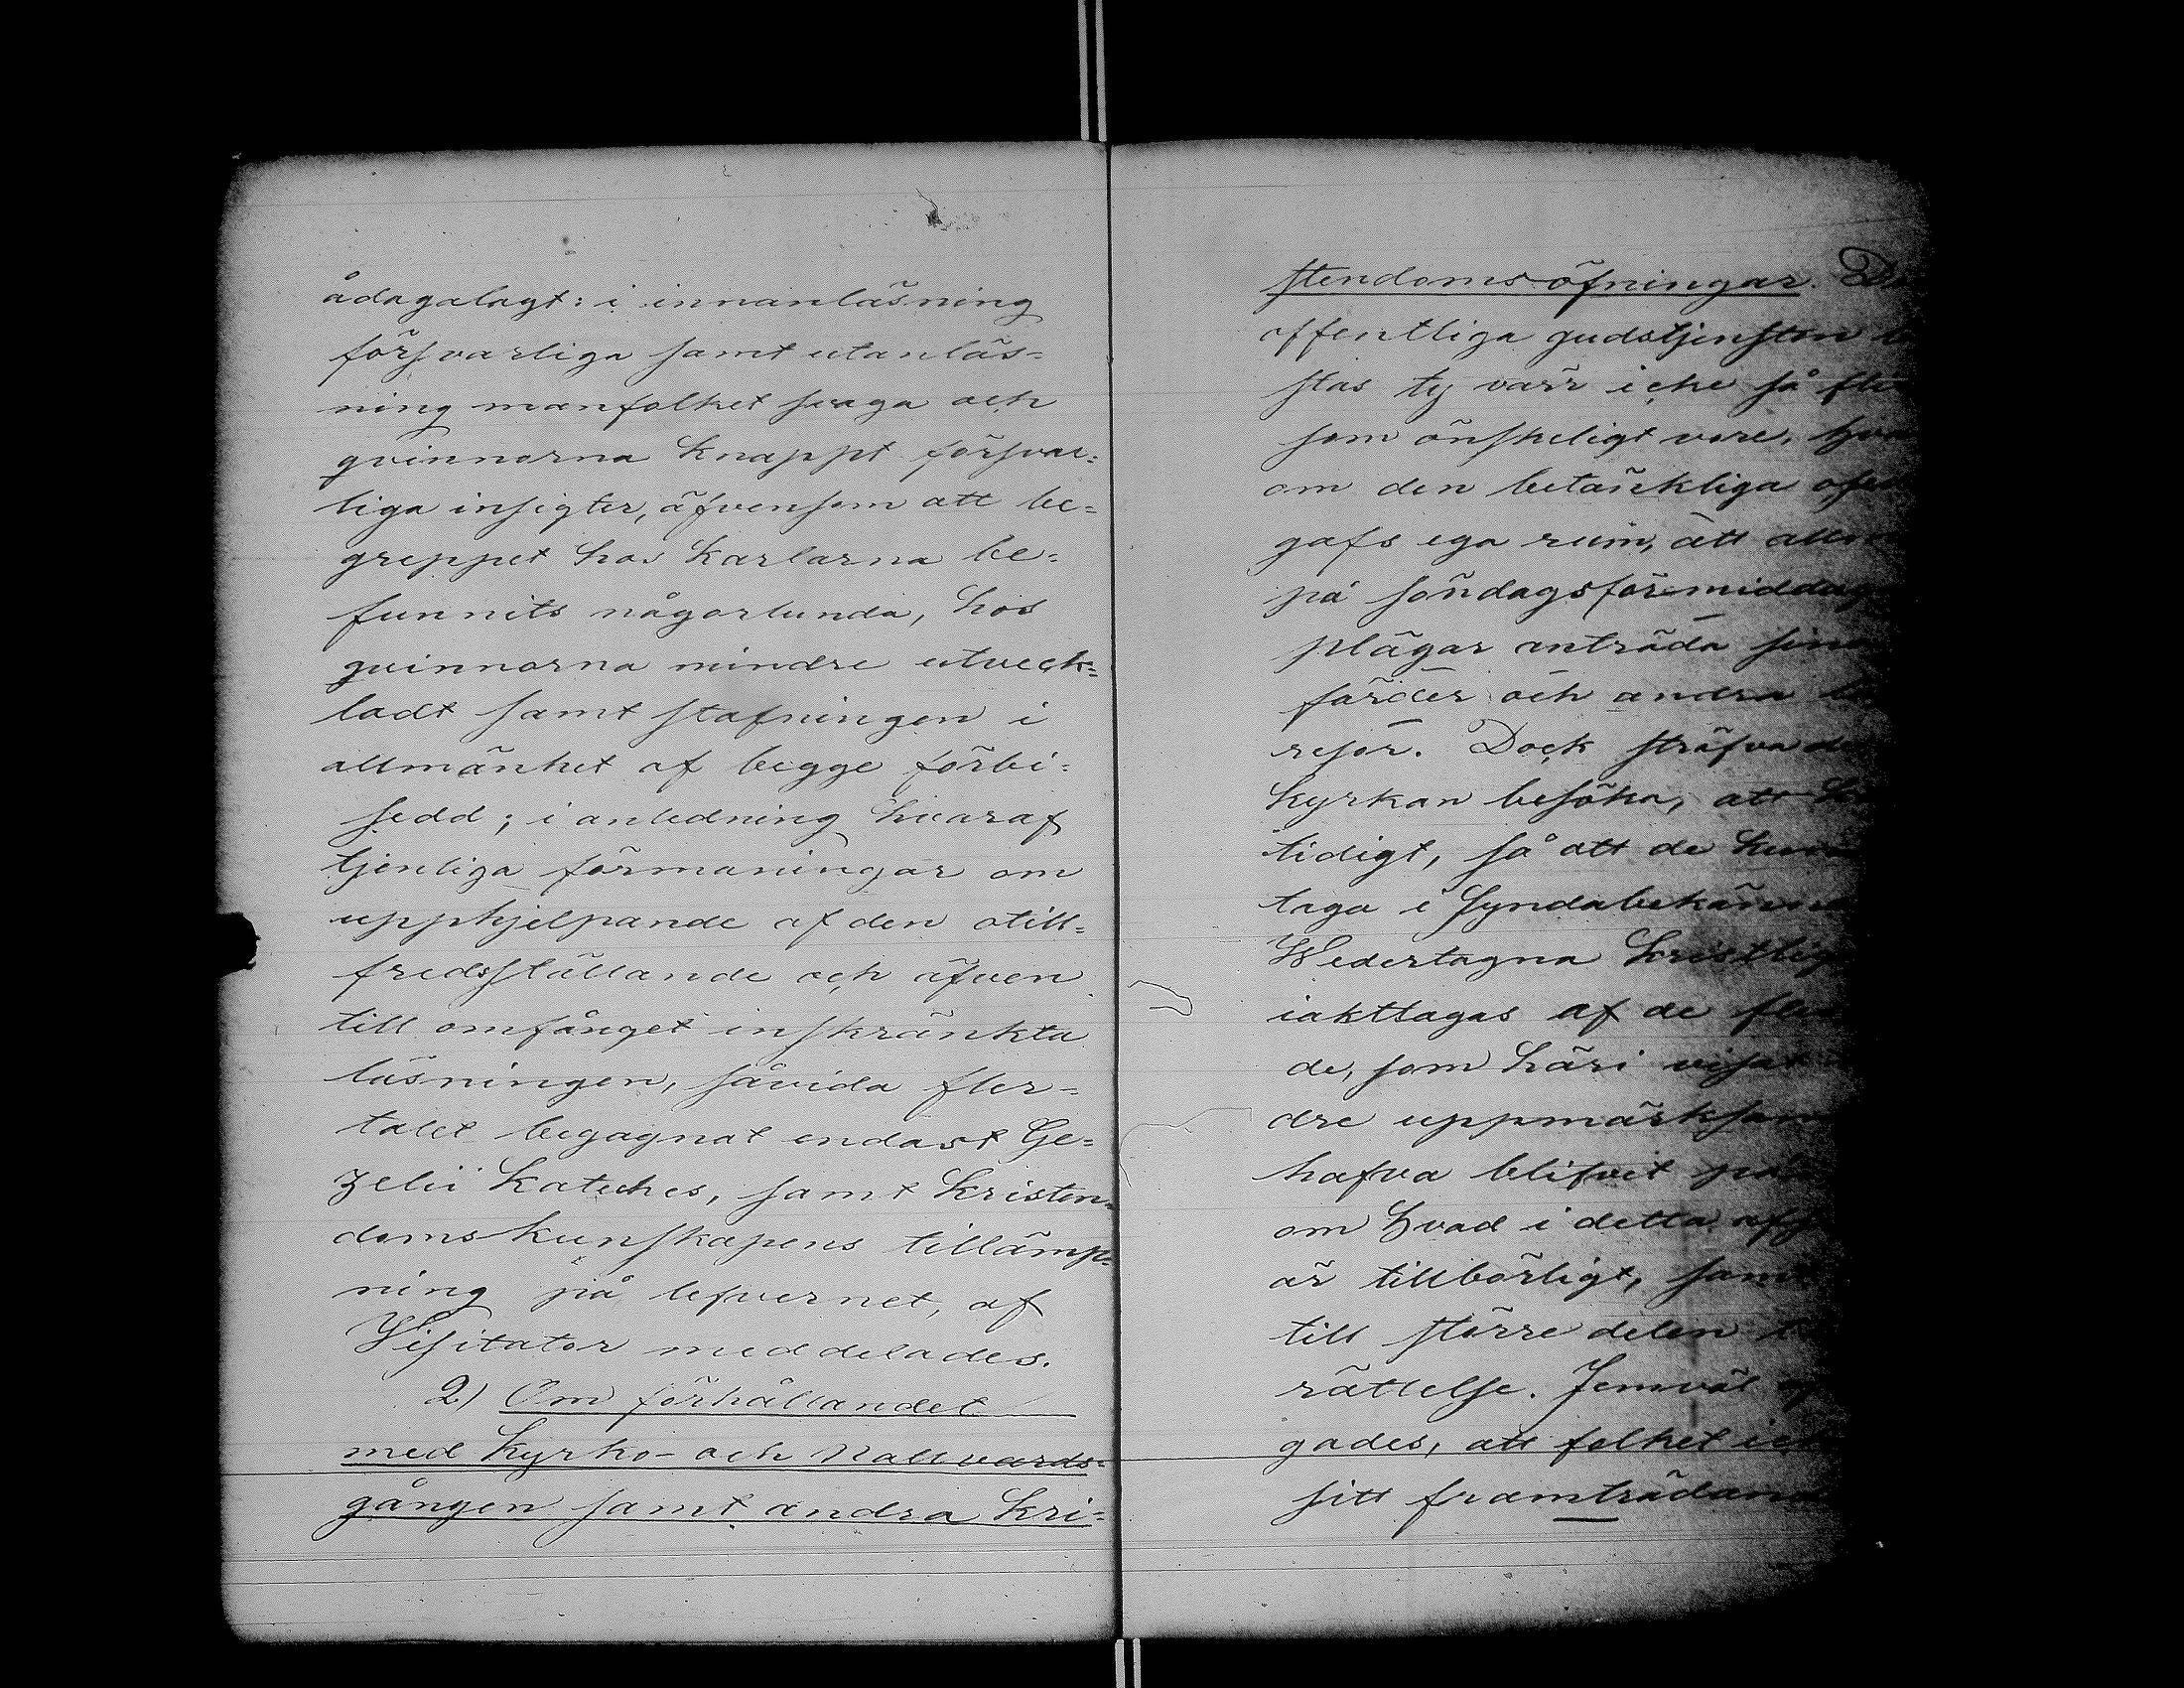 ådagalagt: i innanläsning
försvarliga samt utanläs=
ning manfolket svaga och
qvinnorna knappt försvar=
liga insigter, äfvensom att be=
greppet hos karlarna be=
funnits någorlunda, hos
qvinnorna mindre utveck=
ladt samt stafningen i
allmänhet af begge förbi=
sedd; i anledning hvaraf
tjenliga förmaningar om
upphjelpande af den otill=
fredsställande och äfven
till omfånget inskränkta
läsningen, såvida fler=
talet begagnat endast Ge=
zelii Kateches, samt kristen=
domskunskapens tillämp=
ning på lefvernet, af
Visitator meddelades.
2) Om förhållandet
med kyrko- och Nattvards=
gången samt andra kri=
stendoms öfningar.
offentliga gudstjensten
stas ty värr icke så
som önskeligt vore,
om den betänkliga
gafs ega rum, att
på söndagsförmiddag
plägar anträda
färder och andra
resor. Dock sträfva de
kyrkan besöka, att
tidigt, så att de
taga i Syndabekänne
Wedertagna kristlig
iakttagas af de
de, som häri visat
dre uppmärksam
hafva blifvit
om hvad i detta
är tillbörligt, samt
till större delen
rättelse. Jemväl
gades, att folket
sitt framträdand